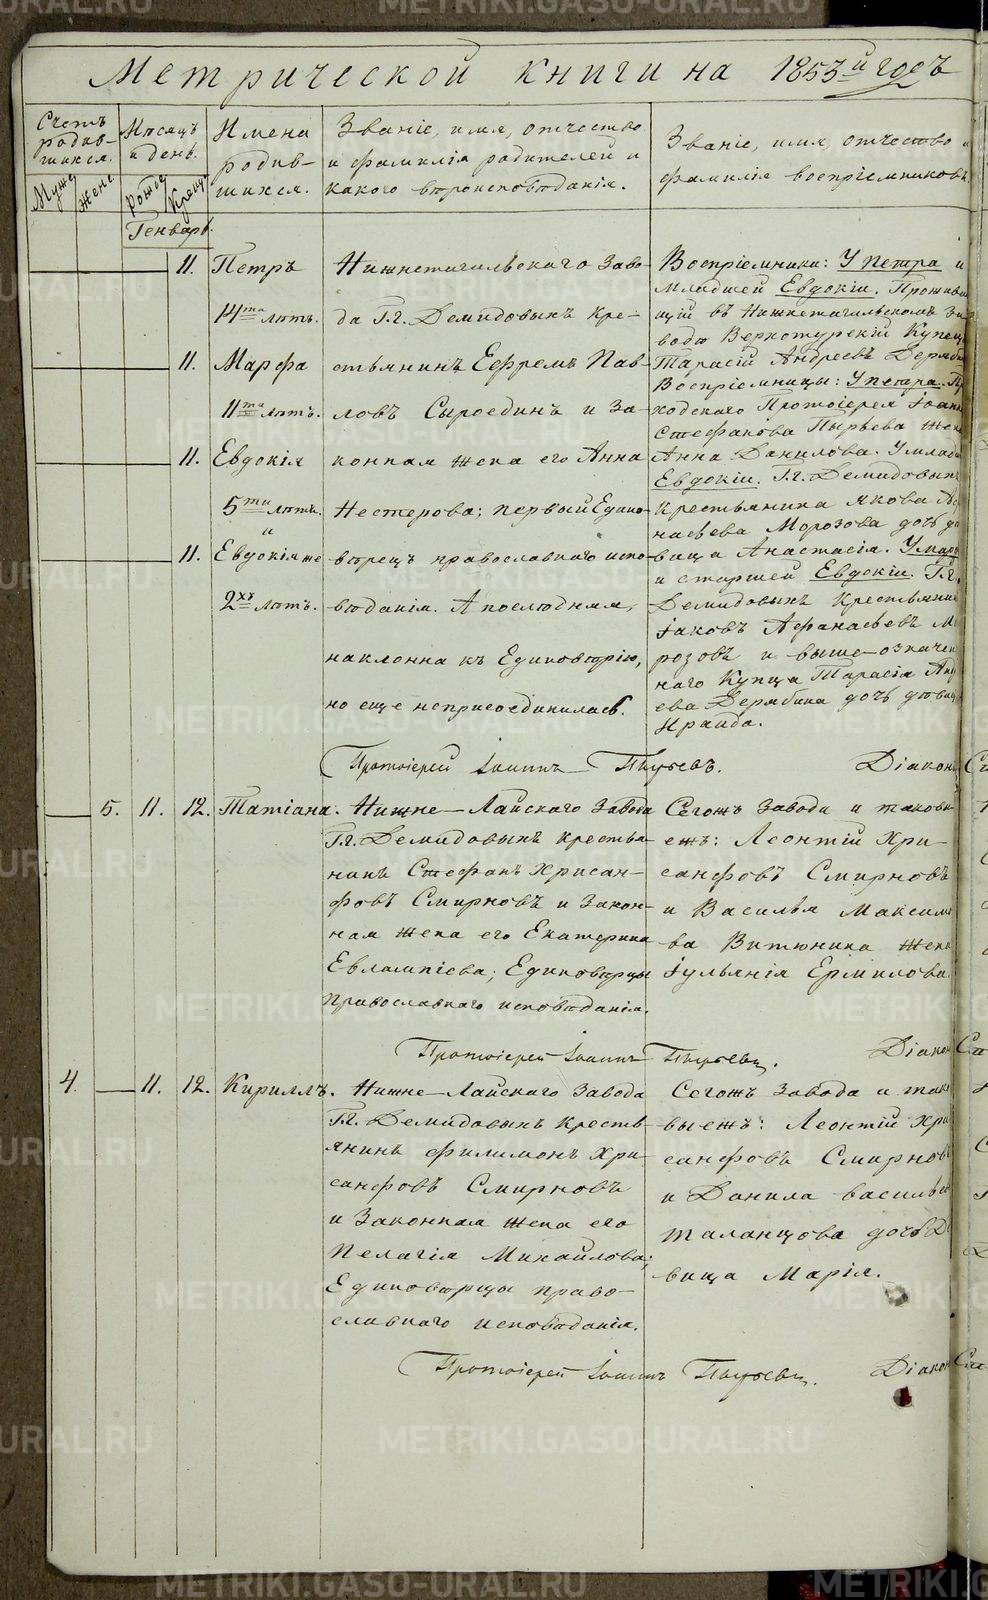 Метрической книги на 1853й годъ
Счетъ родив-шихся.
Муже Женс
Мѣсяцъ и день.
Рожде Креще
Имена родив-шихся.
Званіе, имя, отчество и фамилія родителей и какого вѣроисповѣданія.
Званіе, имя, отчество и фамилія воспріемниковъ
Генварь.
11. Петръ
14ти лѣтъ.
11. Марфа
11ти лѣтъ.
11. Евдокія
5ти лѣтъ.
и
11. Евдокія же
2хъ лѣтъ.
Нижнетагильскаго Заво-
да Г.г. Демидовыхъ Кре-
стьянинъ Ефремъ Пав-
ловъ Сыроединъ и За-
конная жена его Анна
Нестерова; первый Едино-
вѣрецъ православнаго испо-
вѣданія. А послѣдняя,
наклонна къ Единовѣрію,
но еще неприсоединилась.
Воспріемники: У Петра и
младшей Евдокіи. Прожива
щій въ Нижнетагильскомъ За
водѣ Верхотурскій Купец
Тарасій Андреевъ Дерябин
Воспріемницы: У петра. Пр
ходскаго Протоіерея Іоанн
Стефанова Пырьева жен
Анна Данилова. У млад
Евдокіи. Г.г. Демидовых
Крестьянина якова Аф
насьева Морозова дочь дѣ
вица Анастасія. У мар
и старшей Евдокіи. Г.г.
Демидовыхъ Крестьянин
Іаковъ Афанасьевъ Мо
розовъ и выше-означен
наго Купца Тарасія Анд
еева Дерябина дочь дѣвица
Ираида.
Протоіерей Іоаннъ Пырьевъ. Діакон
5. 11. 12. Татіана.
Нижне-Лайскаго Завода
Г.г. Демидовыхъ Кресть-
нинъ Стефанъ Хрисан-
фовъ Смирновъ и Закон-
ная жена его Екатерина
Евлампіева; Единовѣрцы
православнаго исповѣданія.
Сегожъ Завода и таковы
ежъ: Леонтій Хри-
санфовъ Смирновъ
и Василья Максим
ва Витюнина жена
Іульянія Ермилова
Протоіерей Іоаннъ Пырьевъ. Діакон
4. 11. 12. Кириллъ.
Нижне-Лайскаго Завода
Г.г. Демидовыхъ Кресть-
янинъ Филимонъ Хри-
санфовъ Смирновъ
и Законная жена его
Пелагія Михайлова;
Единовѣрцы право-
славнаго исповѣданія.
Сегожъ Завода и тако
выежъ: Леонтій Хри
санфовъ Смирновъ
и Данила Василье
Таланцова дочь Дѣ
вица Марія.
Протоіерей Іоаннъ Пырьевъ. Діакон
METRIKI.GASO-URAL.RU